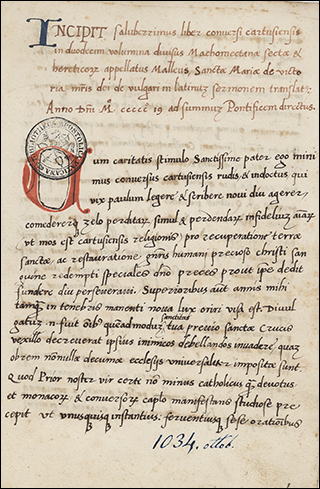 INCIPIT saluberrimus liber conversi cartusiensis
in duodecem volumina divisus Machometanæ sectæ &
hereticoꝝ appellatus Malleus, Sanctæ Mariæ de victo
ria mr̄is dei de vulgari in latinuȝ sermonem translatꝰ
Anno Dn̄i Mº ccccc 19 ad summuȝ Pontificem directus.
Cum caritatis stimulo Sanctissime pater ego mini
mus conversus cartusiensis rudis & indoctus qui
vix paulum legere & scribere novi diu agerer,
comedererqȝ zelo perditaꝝ simul & perdendaꝝ infideliuȝ aīaꝝ
ut mos est cartusiensis religionis pro recuperatione terræ
sanctæ, ac restauratione gn̄ris humani precioso christi san
guine redempti speciales dn̄o preces prout ipse dedit
fundere diu perseveravi. Superioribus aūt annis mihi
tamqȝ in tenebris manenti nova lux oriri visa est. Divul
gatuȝ n. fuit
sanctitas
tua previo sanctæ Crucis
vexillo decreverat ipsius inimicos debellandos invadere, quaȝ
obrem nonnullæ decumæ ecclesijs universaliter impositæ sunt.
Quod Prior noster vir certe nō minus catholicus qȝ devotus
et monacoꝝ & conversoꝝ caplo manifestans studiose pre
cepit ut unusquisqȝ instantius, ferventiusqȝ sese orationibus
1034. ottob.